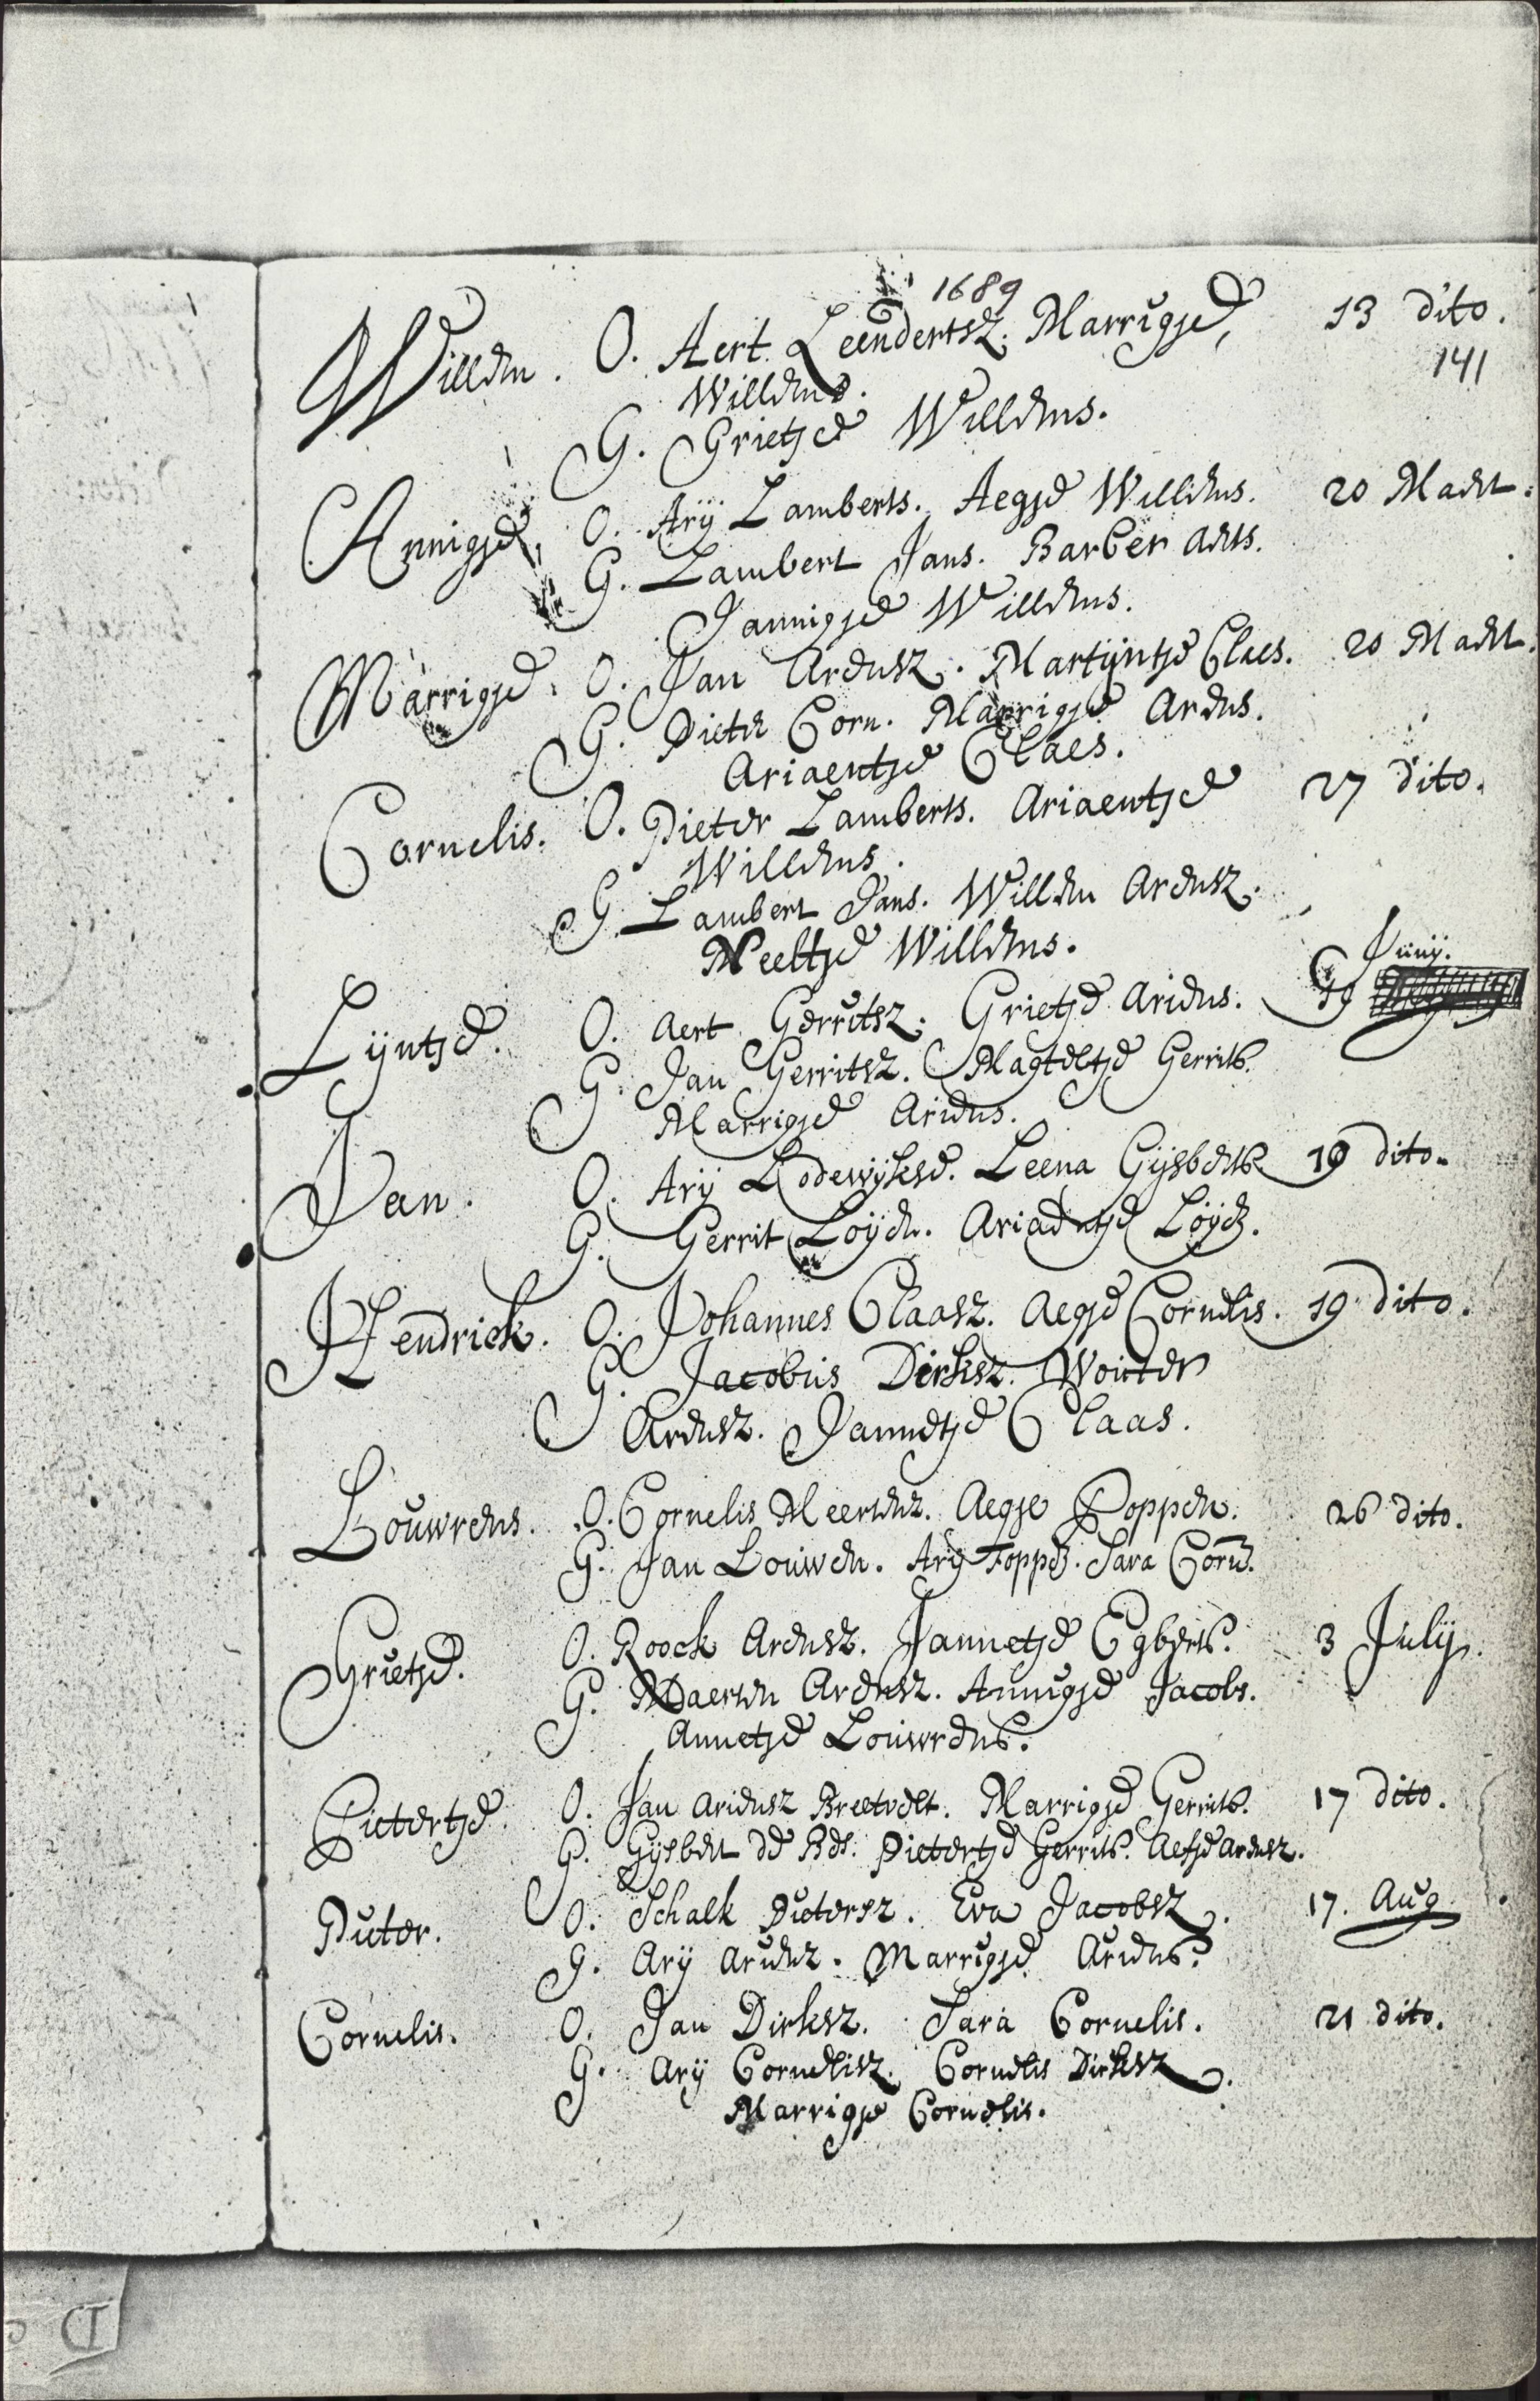 1689
Willem. O. Aert Leendertsz. Marrigje, 13 dito.
141
Willems.
G. Grietje Willems.
Annigje, O. Arÿ Lamberts. Aegje Willems. 20 Maert.
G. Lambert Jans. Barber Aerts.
Jannigje Willems.
Marrigje. O. Jan Arensz. Martÿntje Claes. 20 Maert.
G. Pieter Corn. Marrigje Arens.
Ariaentje Claes.
Cornelis. O. Pieter Lamberts. Ariaentje 27 dito.
Willems.
G. Lambert Jans. Willem Arensz.
Neeltje Willems.
Junÿ.
Lÿntje. O. Aert Gerritsz. Grietje Ariens. 19
G. Jan Gerritsz. Magteltje Gerrits.
Marrigje Ariens.
Jan. O. Arÿ Lodewÿkse. Leena Gÿsberts 19 dito.
G. Gerrit Loÿen. Ariaentje Loÿez.
Hendrick. O. Johannes Claasz. Aegje Cornelis. 19 dito.
G. Jacobus Dirksz. Wouter
Arensz. Jannetje Claas.
Louwrens. O. Cornelis Meertenz. Aegje Poppen. 26 dito.
G. Jan Louwen. Arÿ Foppez. Sara Corn.
Grietje. O. Roock Arensz. Jannetje Egberts. 3 Julÿ.
G. Maerten Arensz. Annigje Jacobs.
Annetje Louwrens.
Pietertje O. Jan Ariensz Breetvelt. Marrigje Gerrits. 17 dito.
G. Gÿsbert de Bes. Pietertje Gerrits. Aefje Arensz.
Pieter. O. Schalk Pietersz. Eva Jacobsz. 17. Aug
G. Arÿ Arienz. Marrigje Ariens.
Cornelis. O. Jan Dirksz. Sara Cornelis. 21 dito.
G. Arÿ Cornelisz. Cornelis Dirksz.
Marrigje Cornelis.